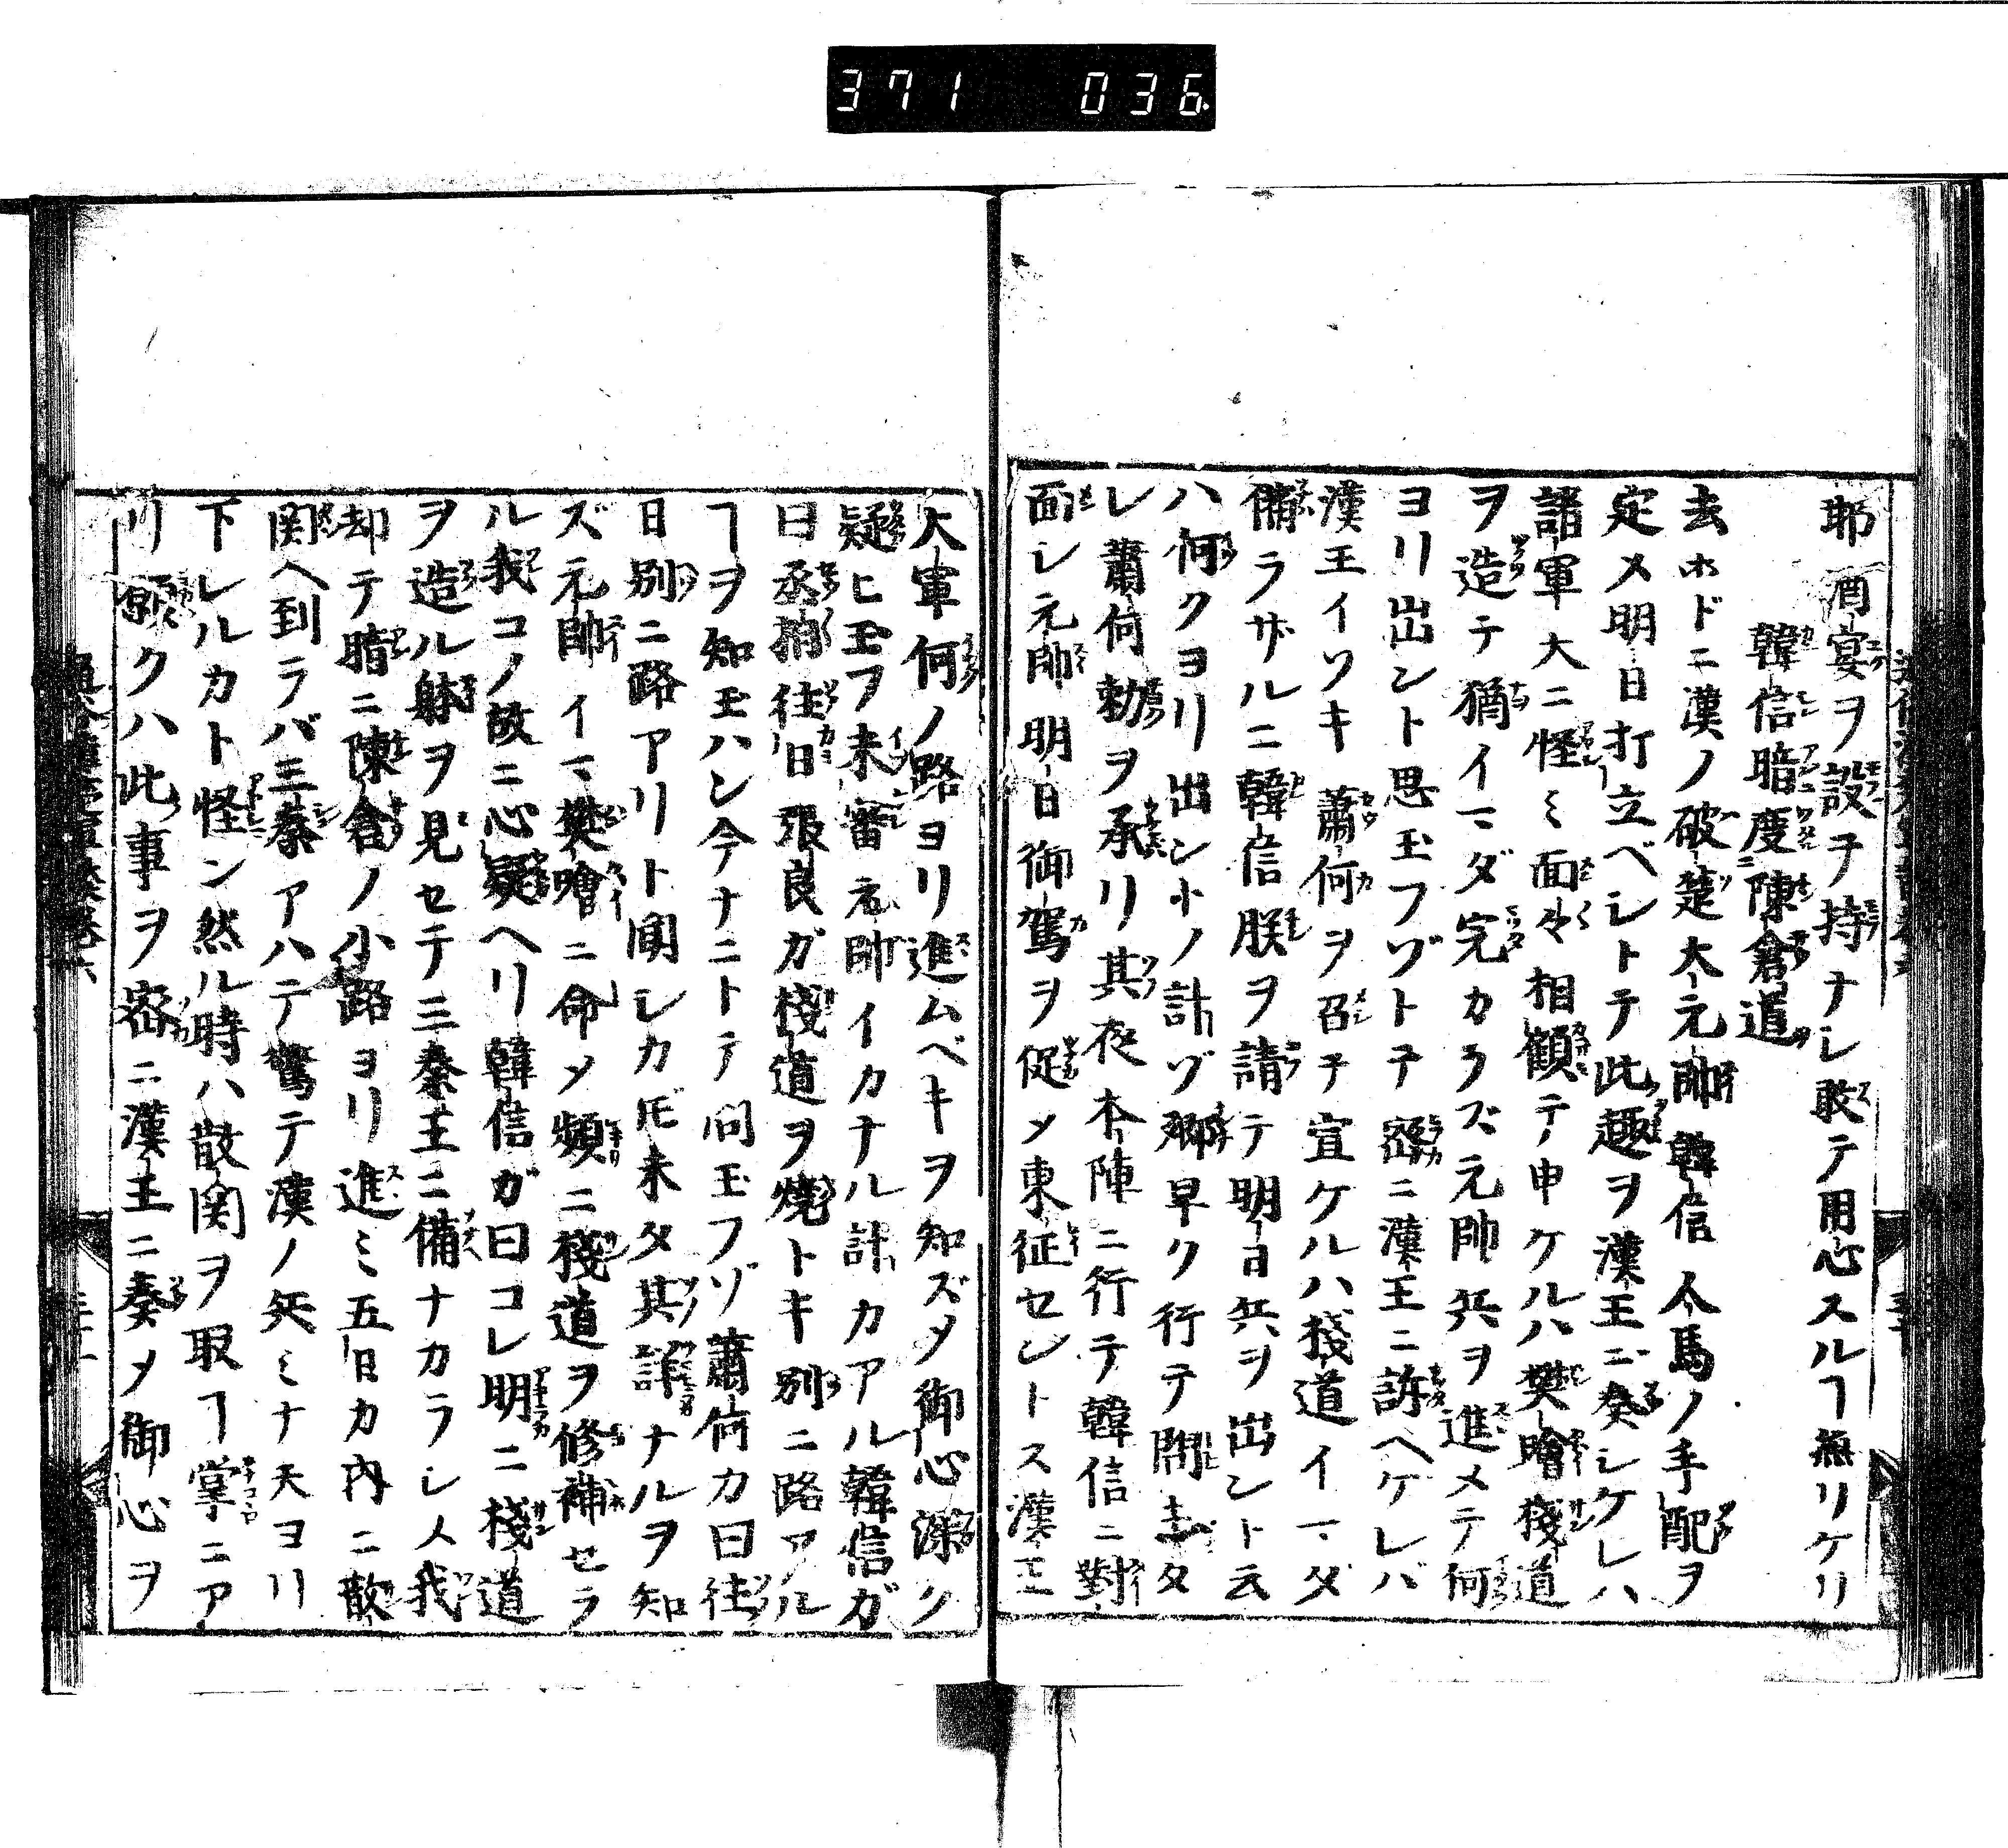 371 036
耶酒宴ヲ設テ持ナシ敢テ用心スルヿ無リケリ
韓信暗度陳倉道
去ホドニ漢ノ破楚大元帥韓信人馬ノ手配ヲ
定メ明日打立ベシトテ此趣ヲ漢王ニ奏シケレハ
諸軍大ニ怪ミ面々相顧テ申ケルハ樊噲棧道
ヲ造テ猶イマダ完カラズ元帥兵ヲ進メテ何
ヨリ出ント思玉フゾトテ密ニ漢王ニ訴ヘケレバ
漢王イソキ蕭何ヲ召テ宣ケルハ棧道イマダ
備ラザルニ韓信朕ヲ請テ明日兵ヲ出ント云
ハ何クヨリ出ントノ計ゾ卿早ク行テ問去タ
レ蕭何勅ヲ承リ其夜本陣ニ行テ韓信ニ對
面シ元帥明日御駕ヲ促メ東征セントス漢王
大軍何ノ路ヨリ進ムベキヲ知ズメ御心深ク
疑ヒ玉フ未審元帥イカナル計カアル韓信ガ
曰丞相往日張良ガ棧道ヲ燒トキ別ニ路アル
ヿヲ知玉ハン今ナニトテ問玉フゾ蕭何カ曰往
日別ニ路アリト聞シカ𪜈未タ其詳ナルヲ知
ズ元帥イマ樊噲ニ命メ頻ニ棧道ヲ修補セラ
ル我コノ故ニ心疑ヘリ韓信ガ曰コレ明ニ棧道
ヲ造ル躰ヲ見セテ三秦王ニ備ナカラシメ我
却テ暗ニ陳倉ノ小路ヨリ進ミ五日カ内ニ散
関ヘ到ラバ三秦アハテ驚テ漢ノ兵ミナ天ヨリ
下レルカト怪ン然ル時ハ散関ヲ取ヿ掌ニア
リ願クハ此事ヲ密ニ漢王ニ奏メ御心ヲ